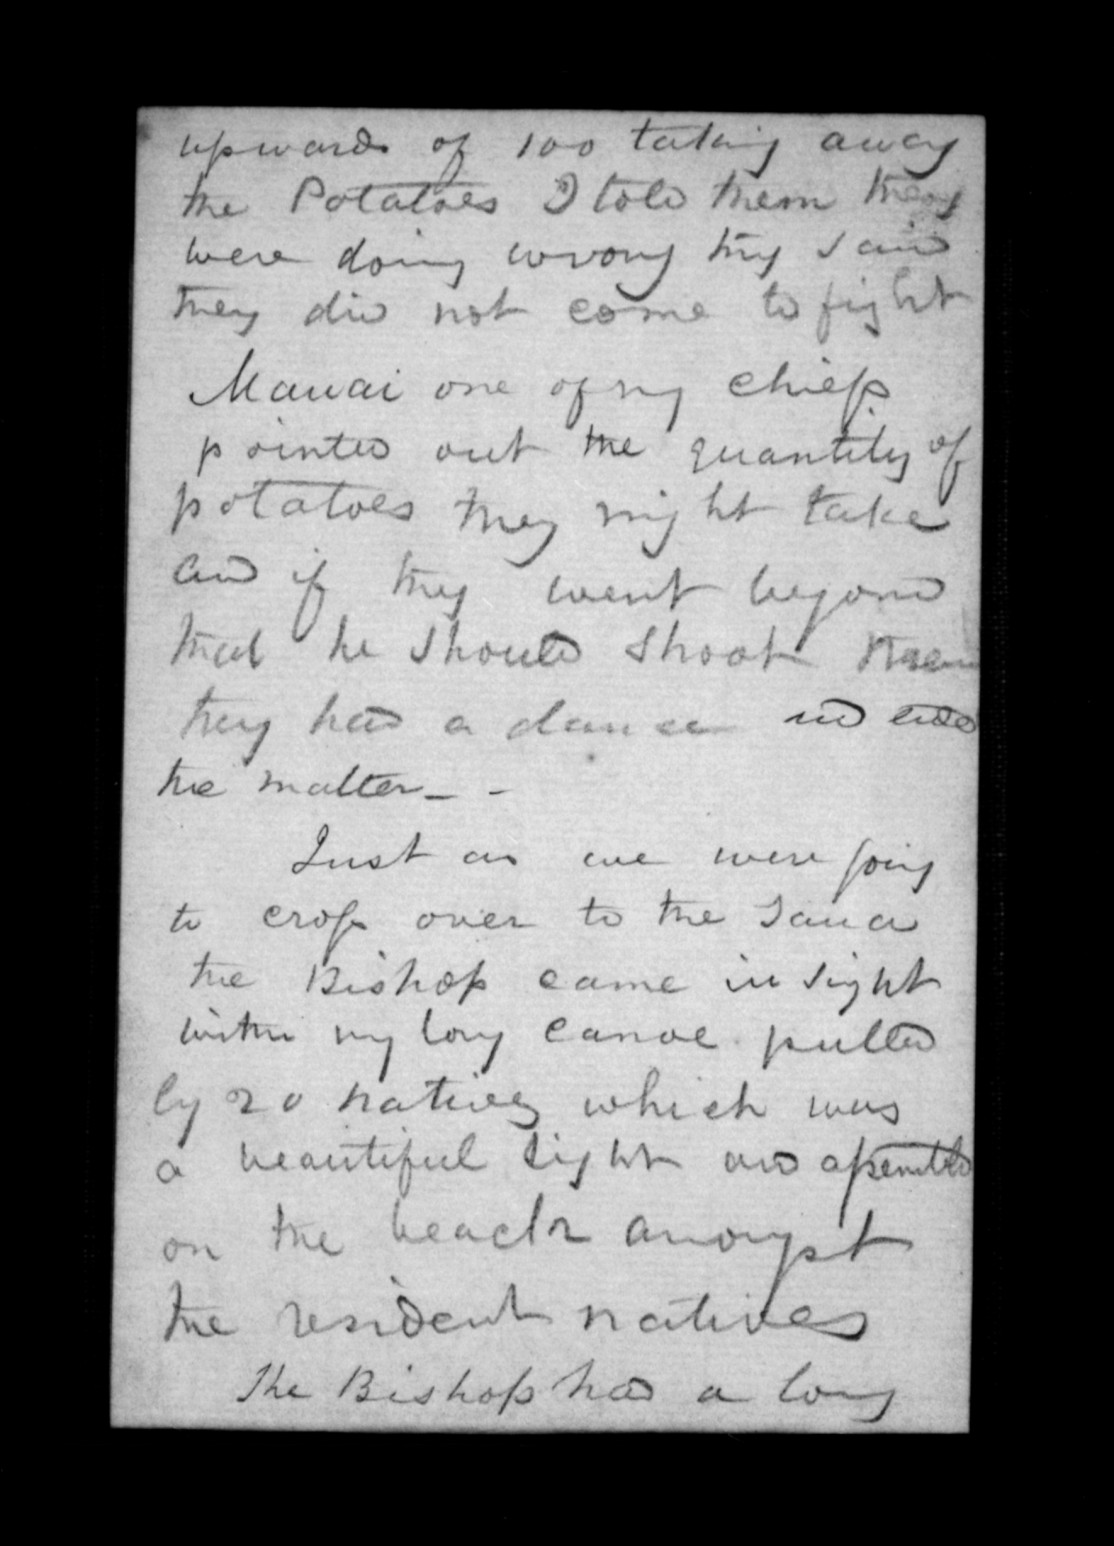 upwards of 100 taking away
the Potatoes I told them they
were doing wrong they said
they did not come to fight
Mauai one of my chiefs
pointed out the quantity of
potatoes they might take
and if they went beyond
that he should shoot them
they had a dance end
the matter - -
Just as we were going
to cross over to the Taua
the Bishop came in sight
with my long canoe pulled
by 20 natives which was
a beautiful sight and assembled
on the beach amongst
the resident natives
The Bishop had a long